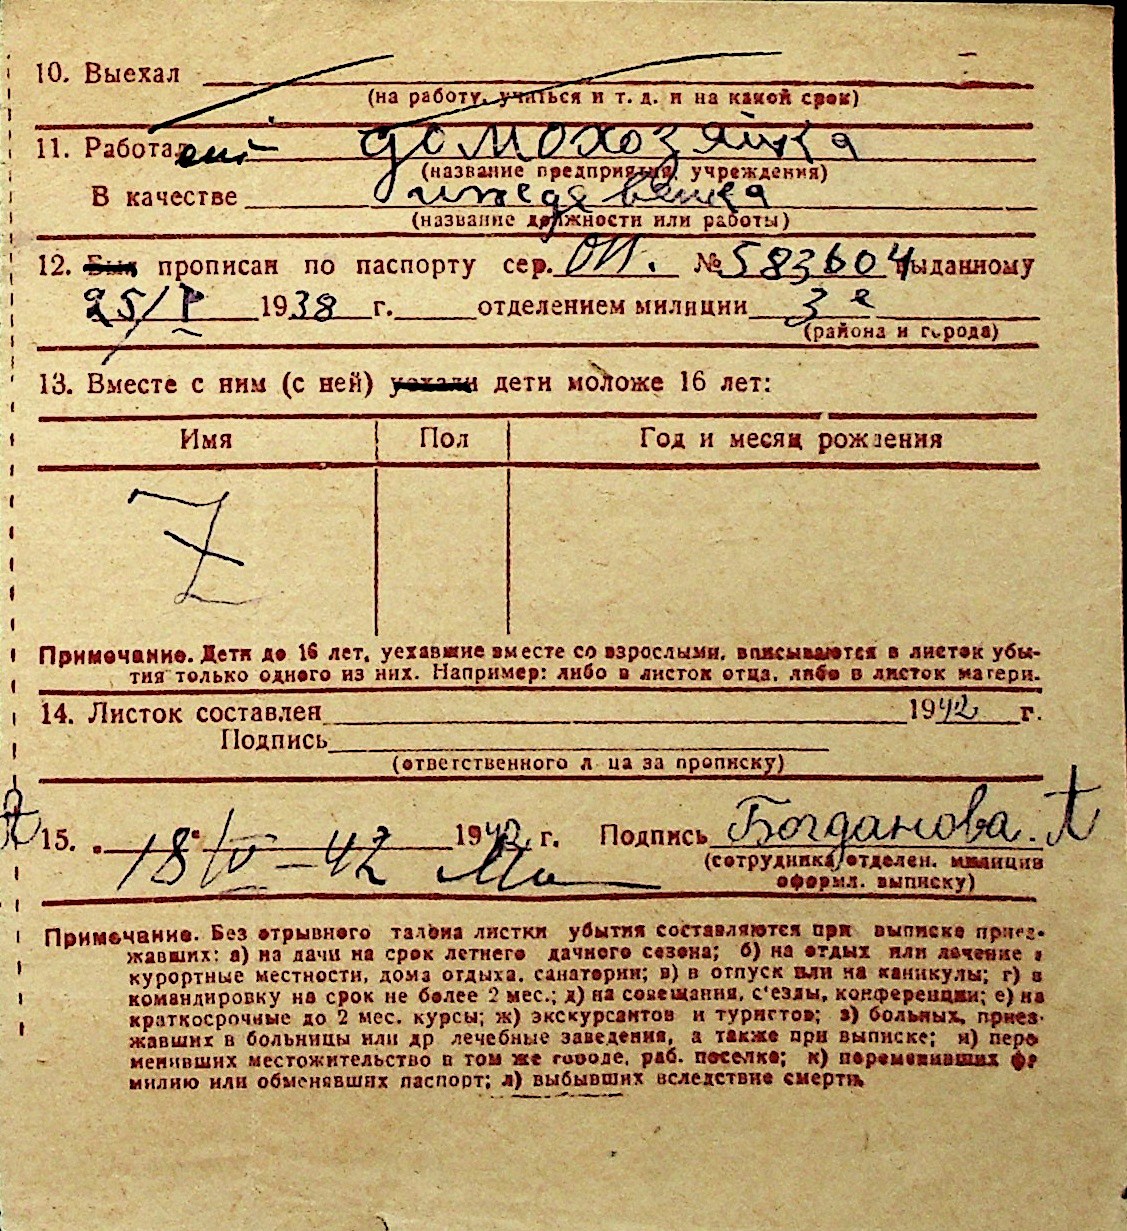 10. Выехал
(на работу, учиться и т. д. и на какой срок)
11. Работа домохозяйка
(название предприятия, учреждения)
В качестве иждевенка
(название должности или работы)
12. Был прописан по паспорту сер. ОП. № 583604 выданному
25/V 1938 г. отделением милиции 3е
(района и города)
13. Вместе с ним (с ней) уехали дети моложе 16 лет:
Имя Пол Год и месяц рождения
Z
Примечание. Дети до 16 лет, уехавшие вместе со взрослыми, вписываются в листок убы-
тия только одного из них. Например: либо в листок отца, либо в листок матери.
14. Листок составлен 1942 г.
Подпись
(ответственного лица за прописку)
15. 18/IV-42 1942 г. Подпись Богданова. А
(сотрудника отделен. милиции
оформл. выписку)
Примечание. Без отрывного талона листки убытия составляются при выписке приез-
жавших: а) на дачи на срок летнего дачного сезона; б) на отдых или лечение в
курортные местности, дома отдыха, санатории; в) в отпуск или на каникулы; г) в
командировку на срок не более 2 мес.; д) на совещания, с'езды, конференции; е) на
краткосрочные до 2 мес. курсы; ж) экскурсантов и туристов; з) больных, приез-
жавших в больницы или др лечебные заведения, а также при выписке; и) пере
менивших местожительство в том же городе, раб. поселке; к) переменивших фа
милию или обменявших паспорт; л) выбывших вследствие смерти.